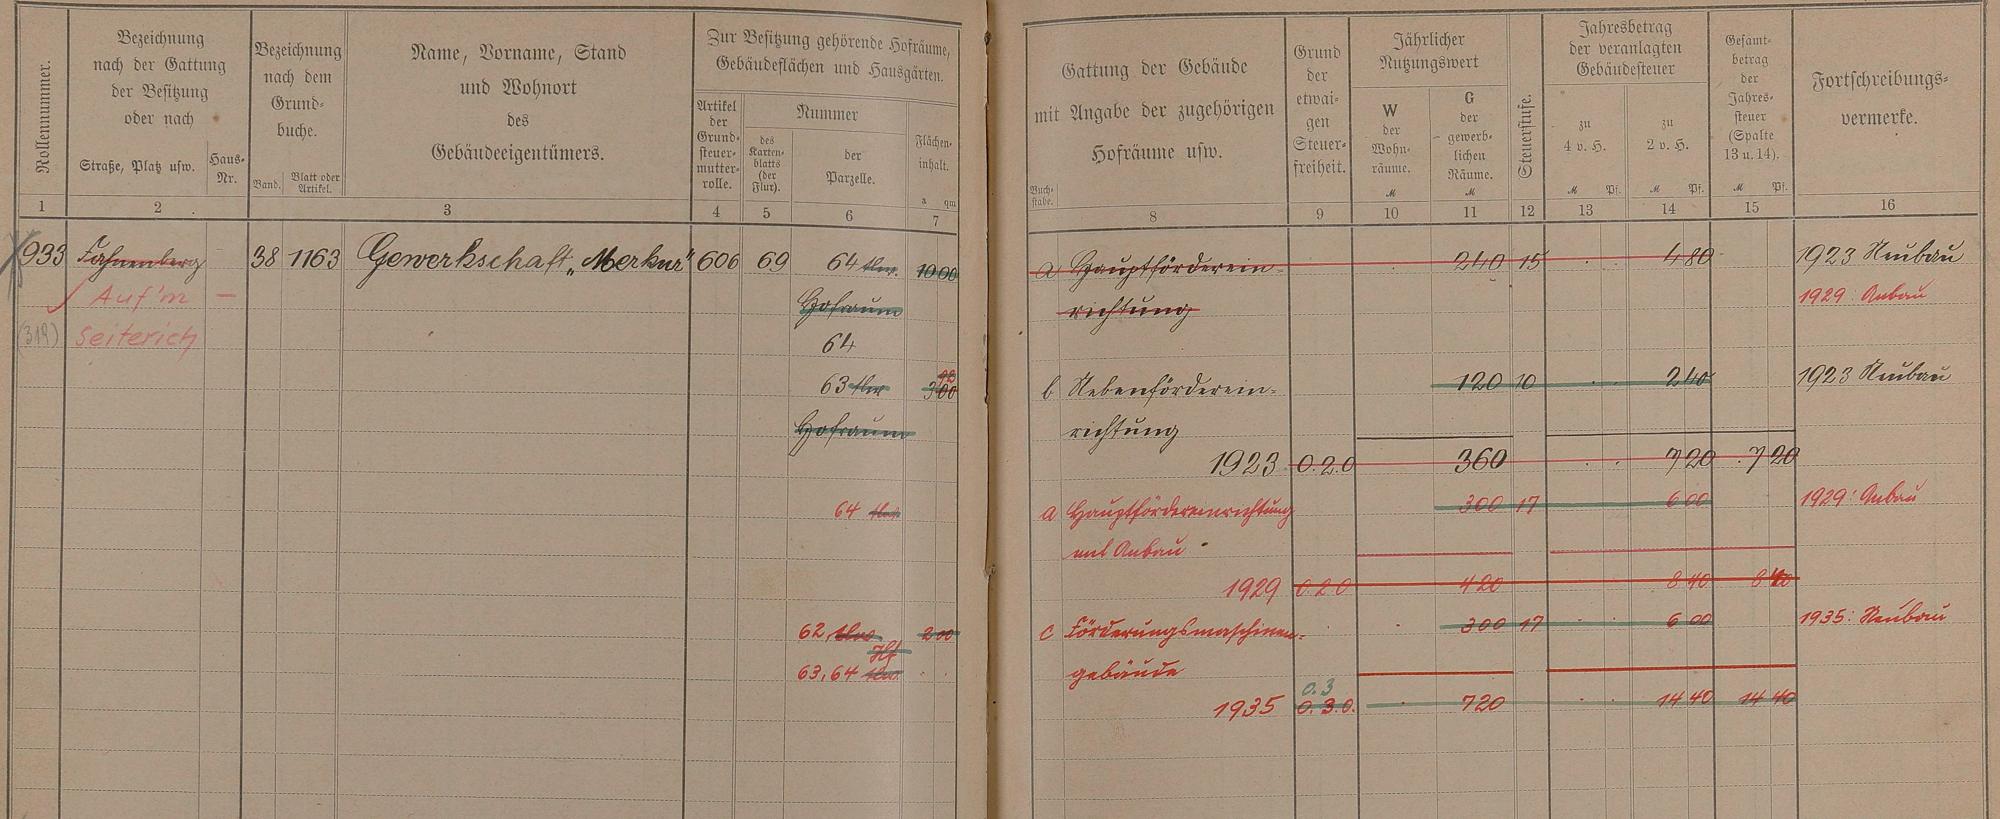 Rollennummer.
Bezeichnung
nach der Gattung
der Besitzung
oder nach
Straße, Platz usw.
Haus-
Nr.
Bezeichnung
nach dem
Grund-
buche.
Band.
Blatt oder
Artikel.
Name, Vorname, Stand
und Wohnort
des
Gebäudeeigentümers.
Zur Besitzung gehörende Hofräume,
Gebäudeflächen und Hausgärten.
Artikel
der
Grund-
steuer-
mutter-
rolle.
Nummer
des
Karten-
blatts
(der
Flur).
der
Parzelle.
Flächen-
inhalt.
a qm
1 2 3 4 5 6 7
933 Fahnenberg 38 1163 Gewerkschaft „Merkur" 606 69 64 tlw. 10 00
Auf'm —
Hofraum
(319) Seiterich
64
63 tlw 3 00
Hofraum
64 tlw
62, tlw 2 00
Hf
63, 64 tlw
Gattung der Gebäude
mit Angabe der zugehörigen
Hofräume usw.
Buch-
stabe.
Grund
der
etwai-
gen
Steuer-
freiheit.
Jährlicher
Nutzungswert
W
der
Wohn-
räume.
M
G
der
gewerb-
lichen
Räume.
M
Steuerstufe.
Jahresbetrag
der veranlagten
Gebäudesteuer
zu
4 v. H.
M Pf.
zu
2 v. H.
M Pf.
Gesamt-
betrag
der
Jahres-
steuer
(Spalte
13 u. 14).
M Pf.
Fortschreibungs-
vermerke.
8 9 10 11 12 13 14 15 16
a Hauptförderein- 240 15 4 80 1923 Neubau
richtung 1929: Anbau
b Nebenförderein- 120 10 2 40 1923 Neubau
richtung
1923 0.2.0 360 7 20 7 20
a Hauptfördereinrichtung 300 17 6 00 1929: Anbau
mit Anbau
1929 0.2.0 420 8 40 8 40
c Förderungsmaschinen- 300 17 6 00 1935: Neubau
gebäude
0.3
1935 0.3.0. 720 14 40 14 40